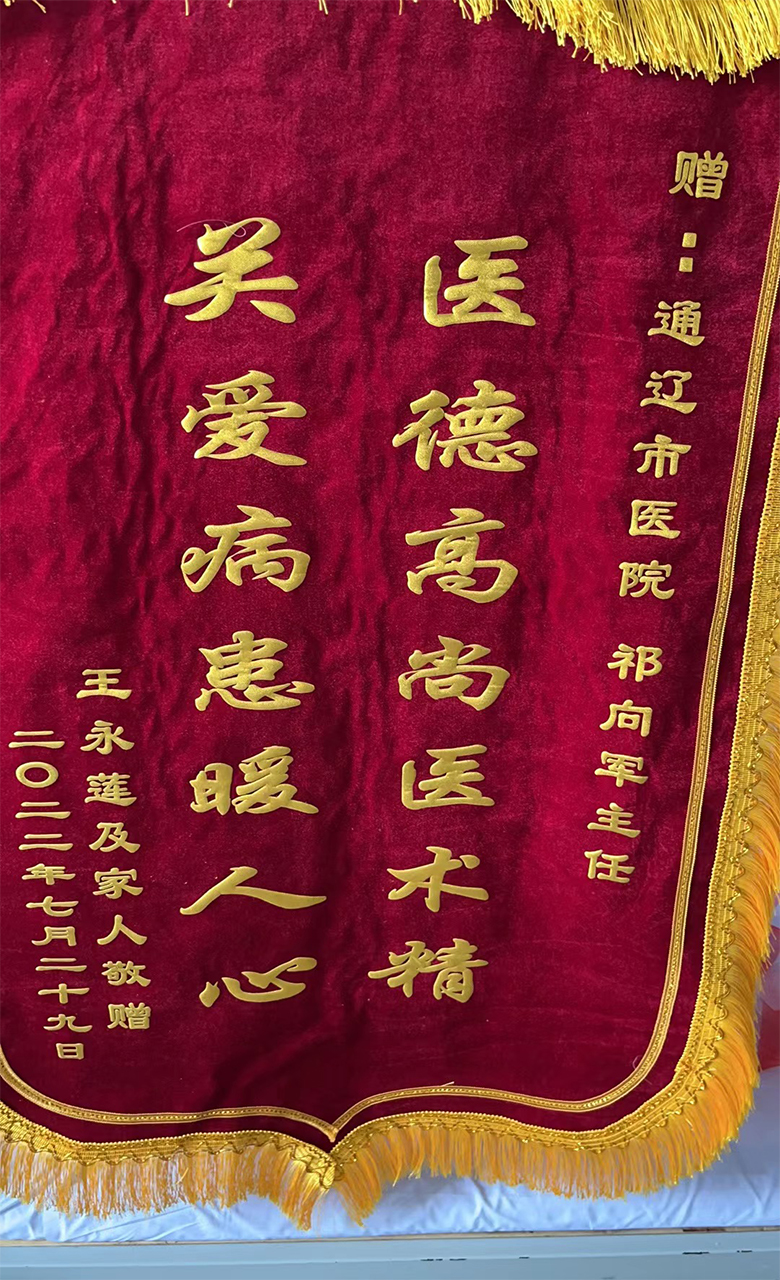 赠：通辽市医院 祁向军主任
医德高尚医术精
关爱病患暖人心
王永莲及家人敬赠
二〇二二年七月二十九日